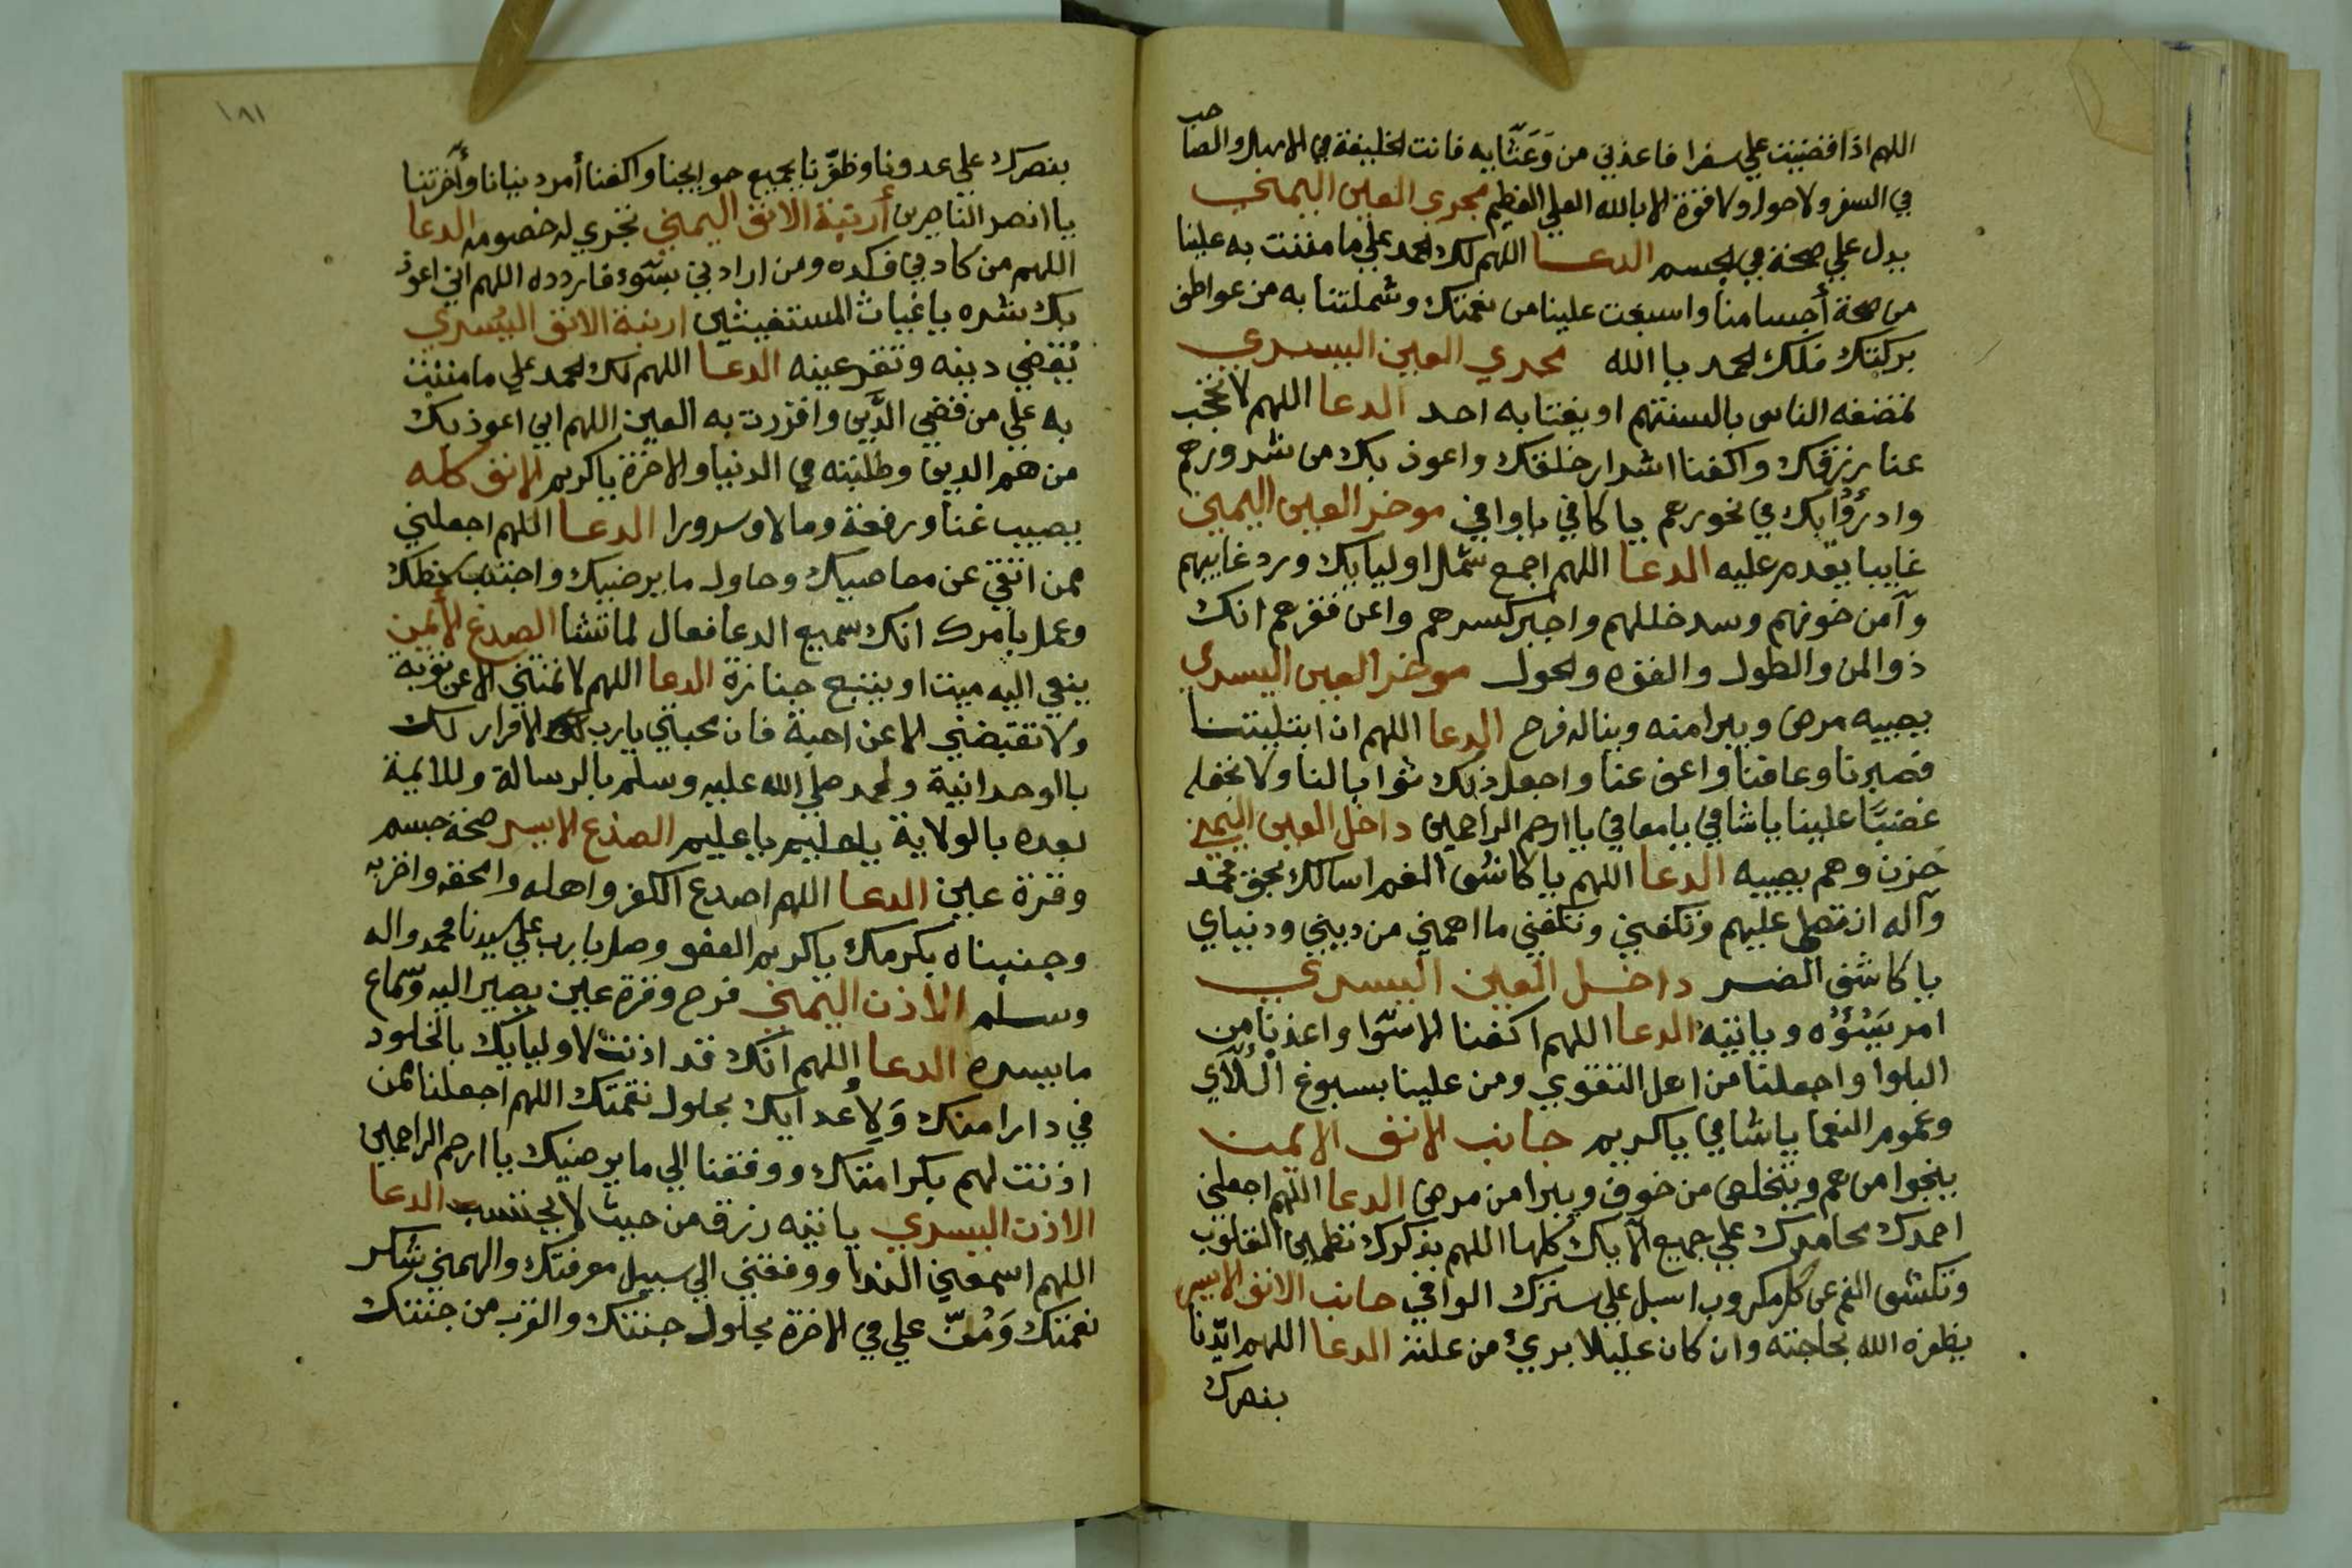 اللهم اذا قضيت علي سفرا فاعذني من وَعَثَّايه فانت الخليفة في الاهل والصاحب
في السفر ولا حول ولا قوة الا بالله العلي العظيم مجري العين اليمني
يدل علي صحة في الجسم الدعا اللهم لك الحمد علي ما مننت به علينا
من صحة أجسامنا واسبغت علينا من نعمتك وشملتنا به من عواطف
بركتك فلك الحمد يا الله مجري العين اليسري
تمضغه الناس بالسنتهم او يغتابه احد الدعا اللهم لا تحجب
عنا رزقك واكفنا اشرار خلقك واعوذ بك من شرورهم
وادرؤا بك في نحورهم يا كافي يا وافي موخر العين اليمني
غايبا يقدم عليه الدعا اللهم اجمع شمل اوليايك ورد غايبهم
وآمن خوفهم وسد خللهم واجبر كسرهم واغن فقرهم انك
ذو المن والطول والقوه والحول موخر العين اليسري
يصيبه مرض ويبرا منه ويناله فرح الدعا اللهم ان ابتليتنا
فصبرنا وعافنا واعف عنا واجعل ذلك ثوابا لنا ولا تجعله
غضبًا علينا يا شافي يا معافي يا ارحم الراحمين داخل العين اليمني
حزن وهم يصيبه الدعا اللهم يا كاشف الغم اسالك بحق محمد
وآله ان تصلي عليهم وتكفيني ما اهمني من ديني ودنياي
يا كاشف الضر داخل العين اليسري
امر يَسُؤُه وياتيه الدعا اللهم اكفنا الاسوا واعذنا من
البلوا واجعلنا من اهل التقوي ومن علينا بسبوغ اللآي
وعموم النعما يا شافي يا كريم جانب الانف الايمن
ينجوا من هم ويتخلص من خوف ويبرا من مرض الدعا اللهم اجعلني
احمدك محامدك علي جميع الآيك كلها اللهم بذكرك تطمين القلوب
وتكشف الغم عن كل مكروب اسبل علي سترك الوافي جانب الانف الايسر
يظفره الله بحاجته وان كان عليلا برئ من علته الدعا اللهم ايّدنا
بنصرك
١٨١
بنصرك علي عدونا وظفّرنا بجميع حوايجنا واكفنا أمر دنيانا وأخرتنا
يا انصر الناصرين أرنبة الانف اليمني تجري له خصومه الدعا
اللهم من كادني فكده ومن ارادني بسوء فاردده اللهم اني اعوذ
بك شره يا غياث المستغيثين ارنبة الانف اليُسري
يُقضي دينه وتقر عينه الدعا اللهم لك الحمد علي ما مننت
به علي من قضي الدَّين واقررت به العين اللهم اني اعوذ بك
من هم الدين وطلبته في الدنيا والاخرة يا كريم الانف كله
يصيب غنا ورفعة ومالا وسرورا الدعا اللهم اجعلني
ممن انتقي عن معاصيك وحاول ما يرضيك واجتنب سخطك
وعمل بامرك انك سميع الدعا فعال لما تشا الصدغ الأيمن
ينعي اليه ميت او يتبع جنازة الدعا اللهم لا تمتني الا عن توبة
ولا تقبضني الا عن اهبة فان محبتي يا رب الاقرار لك
بالوحدانية ولمحمد صلي الله عليه وسلم بالرسالة وللائمة
بعده بالولاية يا حليم يا عليم الصدغ الايسر صحة جسم
وقرة عين الدعا اللهم اصدع الكفر واهله وامحقه واخزيه
وجنبناه بكرمك يا كريم العفو وصل يا رب علي سيدنا محمد واله
وسلم الأذن اليمني فرح وقرة عين يصير اليه وسماع
ما يسره الدعا اللهم انك قد اذنت لاوليايك بالخلود
في دار امنك وَلِأعدايك بحلول نقمتك اللهم اجعلنا ممن
اذنت لهم بكرامتك ووفقنا الي ما يرضيك يا ارحم الراحمين
الاذن اليسري ياتيه رزق من حيث لا يحتسب الدعا
اللهم اسمعني الندا ووفقني الي سبيل معرفتك والهمني شكر
نعمتك وَمُنّ علي في الاخرة بحلول جنتك والقرب من جنتك